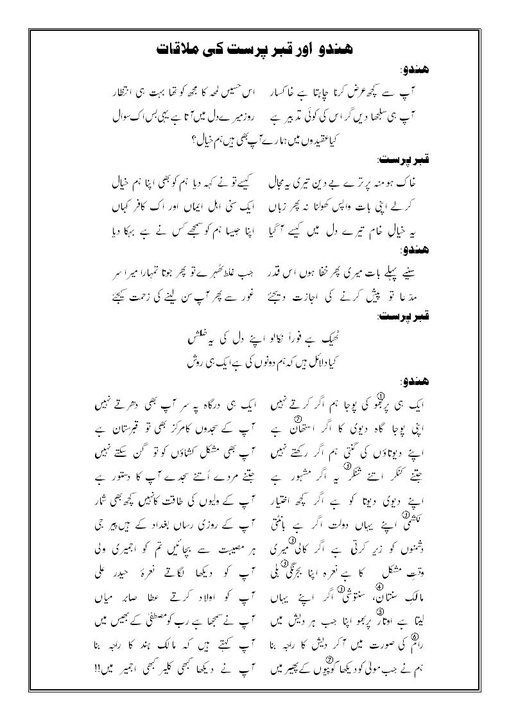 ھندو اور قبر پرست کی ملاقات
ھندو:
آپ سے کچھ عرض کرنا چاہتا ہے خاکسار اس حسیں لمحہ کا مجھ کو تھا بہت ہی انتظار
آپ ہی سلجھا دیں گر اس کی کوئی تدبیر ہے روز میرے دل میں آتا ہے یہی بس اک سوال
کیا عقیدوں میں ہمارے آپ بھی ہیں ہم خیال؟
قبر پرست:
خاک ہو منہ پر ترے بے دین تیری یہ مجال کیسے تو نے کہہ دیا ہم کو بھی اپنا ہم خیال
کر لے اپنی بات واپس کھولنا نہ پھر زباں ایک سنی اہل ایماں اور اک کافر کہاں
یہ خیال خام تیرے دل میں کیسے آ گیا اپنا جیسا ہم کو سمجھے کس نے ہے بہکا دیا
ھندو:
سنیے پہلے بات میری پھر خفا ہوں اس قدر جب غلط ٹھہرے تو پھر جوتا تمہارا میرا سر
مدعا تو پیش کرنے کی اجازت دیجئے غور سے پھر آپ سن لینے کی زحمت کیجئے
قبر پرست:
ٹھیک ہے فوراً نکالو اپنے دل کی یہ خلش
کیا دلائل ہیں کہ ہم دونوں کی ہے ایک ہی روش
ھندو:
ایک ہی پربھو① کی پوجا ہم اگر کرتے نہیں ایک ہی درگاہ پہ سر آپ بھی دھرتے نہیں
اپنی پوجا گاہ دیوی کا اگر استھان② ہے آپ کے سجدوں کا مرکز بھی تو قبرستان ہے
اپنے دیوتاؤں کی گنتی ہم اگر رکھتے نہیں آپ بھی مشکل کشاؤں کو تو گن سکتے نہیں
جتنے کنکر اتنے شنکر③ یہ اگر مشہور ہے جتنے مردے اُتنے سجدے آپ کا دستور ہے
اپنے دیوی دیوتا کو ہے اگر کچھ اختیار آپ کے ولیوں کی طاقت کا نہیں کچھ بھی شمار
لکشمی اپنے یہاں دولت اگر ہے بانٹتی آپ کے روزی رساں بغداد کے ہیں پیر جی
دشمنوں کو زیر کرتی ہے اگر کالی میری ہر مصیبت سے بچائیں تم کو اجمیری ولی
وقت مشکل کا ہے نعرہ اپنا بجرنگی بلی آپ کو دیکھا لگاتے نعرۂ حیدر علی
مالک سنتان، سنتوشی اگر اپنے یہاں آپ کو اولاد کرتے عطا صابر میاں
لیتا ہے اوتار پربھو اپنا جب ہر دیش میں آپ نے سمجھا ہے رب کو مصطفیٰ کے بھیس میں
رام کی صورت میں آ کر دیش کا راجہ بنا آپ کہتے ہیں کہ مالک ہند کا راجہ بنا
ہم نے جب مولی کو دیکھا گوپیوں کے پھیر میں آپ نے دیکھا کبھی کلیر کبھی اجمیر میں!!